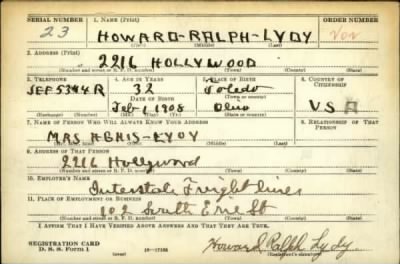 SERIAL NUMBER 1. NAME (Print) ORDER NUMBER
23 HOWARD-RALPH-LYDY
(First) (Middle) (Last)
2. ADDRESS (Print)
2216 HOLLYWOOD
(Number and street or R. F. D. number) (Town) (County) (State)
3. TELEPHONE 4. AGE IN YEARS 5. PLACE OF BIRTH 6. COUNTRY OF CITIZENSHIP
JEF5344R 32 Toledo
DATE OF BIRTH (Town or county)
Feb 1, 1908 Ohio USA
(Exchange) (Number) (Mo.) (Day) (Yr.) (State or country)
7. NAME OF PERSON WHO WILL ALWAYS KNOW YOUR ADDRESS 8. RELATIONSHIP OF THAT PERSON
MRS AGNIS-LYDY
(Mr., Mrs., Miss) (First) (Middle) (Last)
9. ADDRESS OF THAT PERSON
2216 Hollywood
(Number and street or R. F. D. number) (Town) (County) (State)
10. EMPLOYER'S NAME
Interstate Freight Lines
11. PLACE OF EMPLOYMENT OR BUSINESS
102 South Erie St
(Number and street or R. F. D. number) (Town) (County) (State)
I AFFIRM THAT I HAVE VERIFIED ABOVE ANSWERS AND THAT THEY ARE TRUE.
REGISTRATION CARD
D. S. S. Form 1 Howard Ralph Lydy
(Registrant's signature)